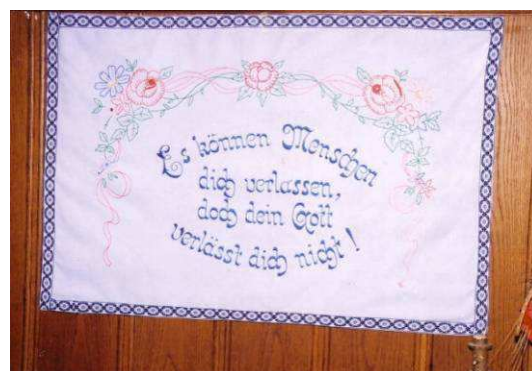 Es können Menschen
dich verlassen,
doch dein Gott
verlässt dich nicht!